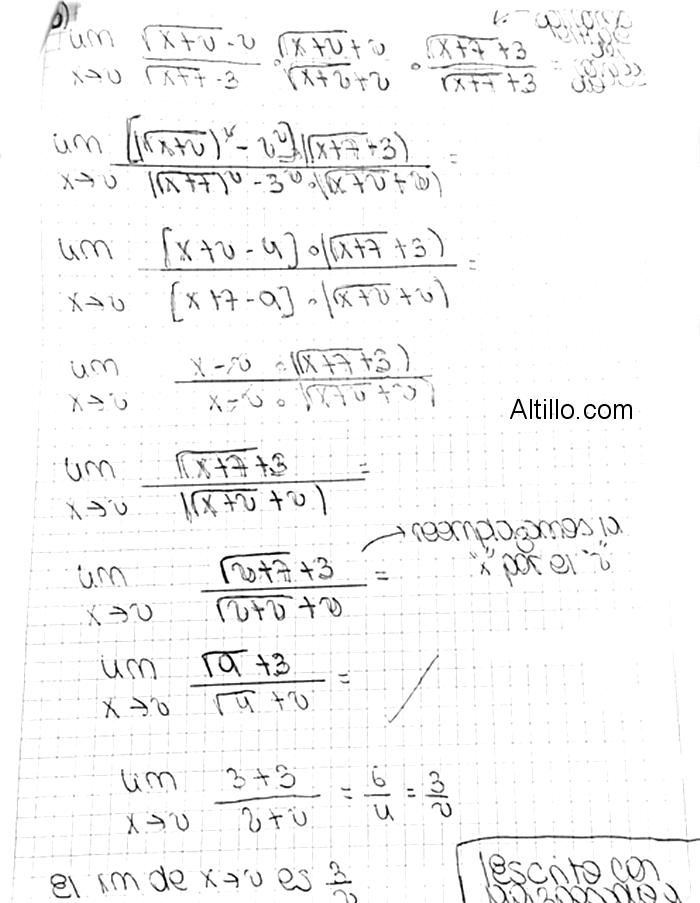 b)
lim x→2 (√(x+2) - 2)/(√(x+7) - 3) · (√(x+2) + 2)/(√(x+2) + 2) · (√(x+7) + 3)/(√(x+7) + 3) =
lim x→2 [(√(x+2))² - 2²] · (√(x+7) + 3) / (√(x+7))² - 3² · (√(x+2) + 2) =
lim x→2 [x+2-4] · (√(x+7) + 3) / [x+7-9] · (√(x+2) + 2) =
lim x→2 x-2 · (√(x+7) + 3) / x-2 · (√(x+2) + 2)
Altillo.com
lim x→2 √(x+7) + 3 / (√(x+2) + 2) =
→ reemplazamos la
"x" por el "2"
lim x→2 (√(2+7) + 3)/(√(2+2) + 2) =
lim x→2 (√9 + 3)/(√4 + 2) =
lim x→2 (3+3)/(2+2) = 6/4 = 3/2
el lim de x→2 es 3/2
escrito con